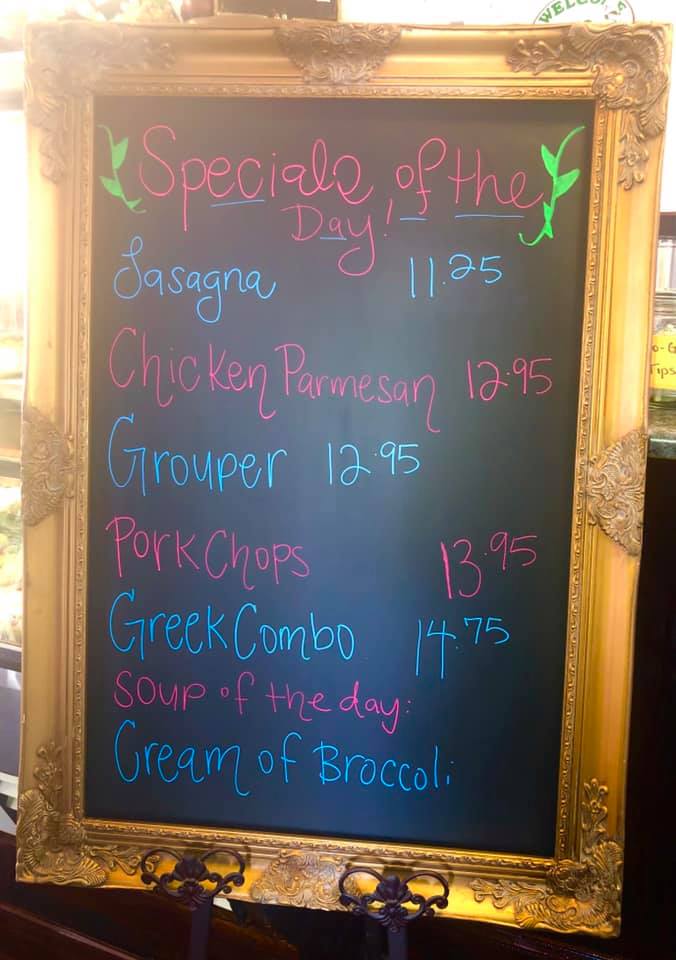 WELCOME
Specials of the
Day!
Lasagna 11.25
Chicken Parmesan 12.95
Grouper 12.95
Pork Chops 13.95
Greek Combo 14.75
Soup of the day:
Cream of Broccoli
Tips